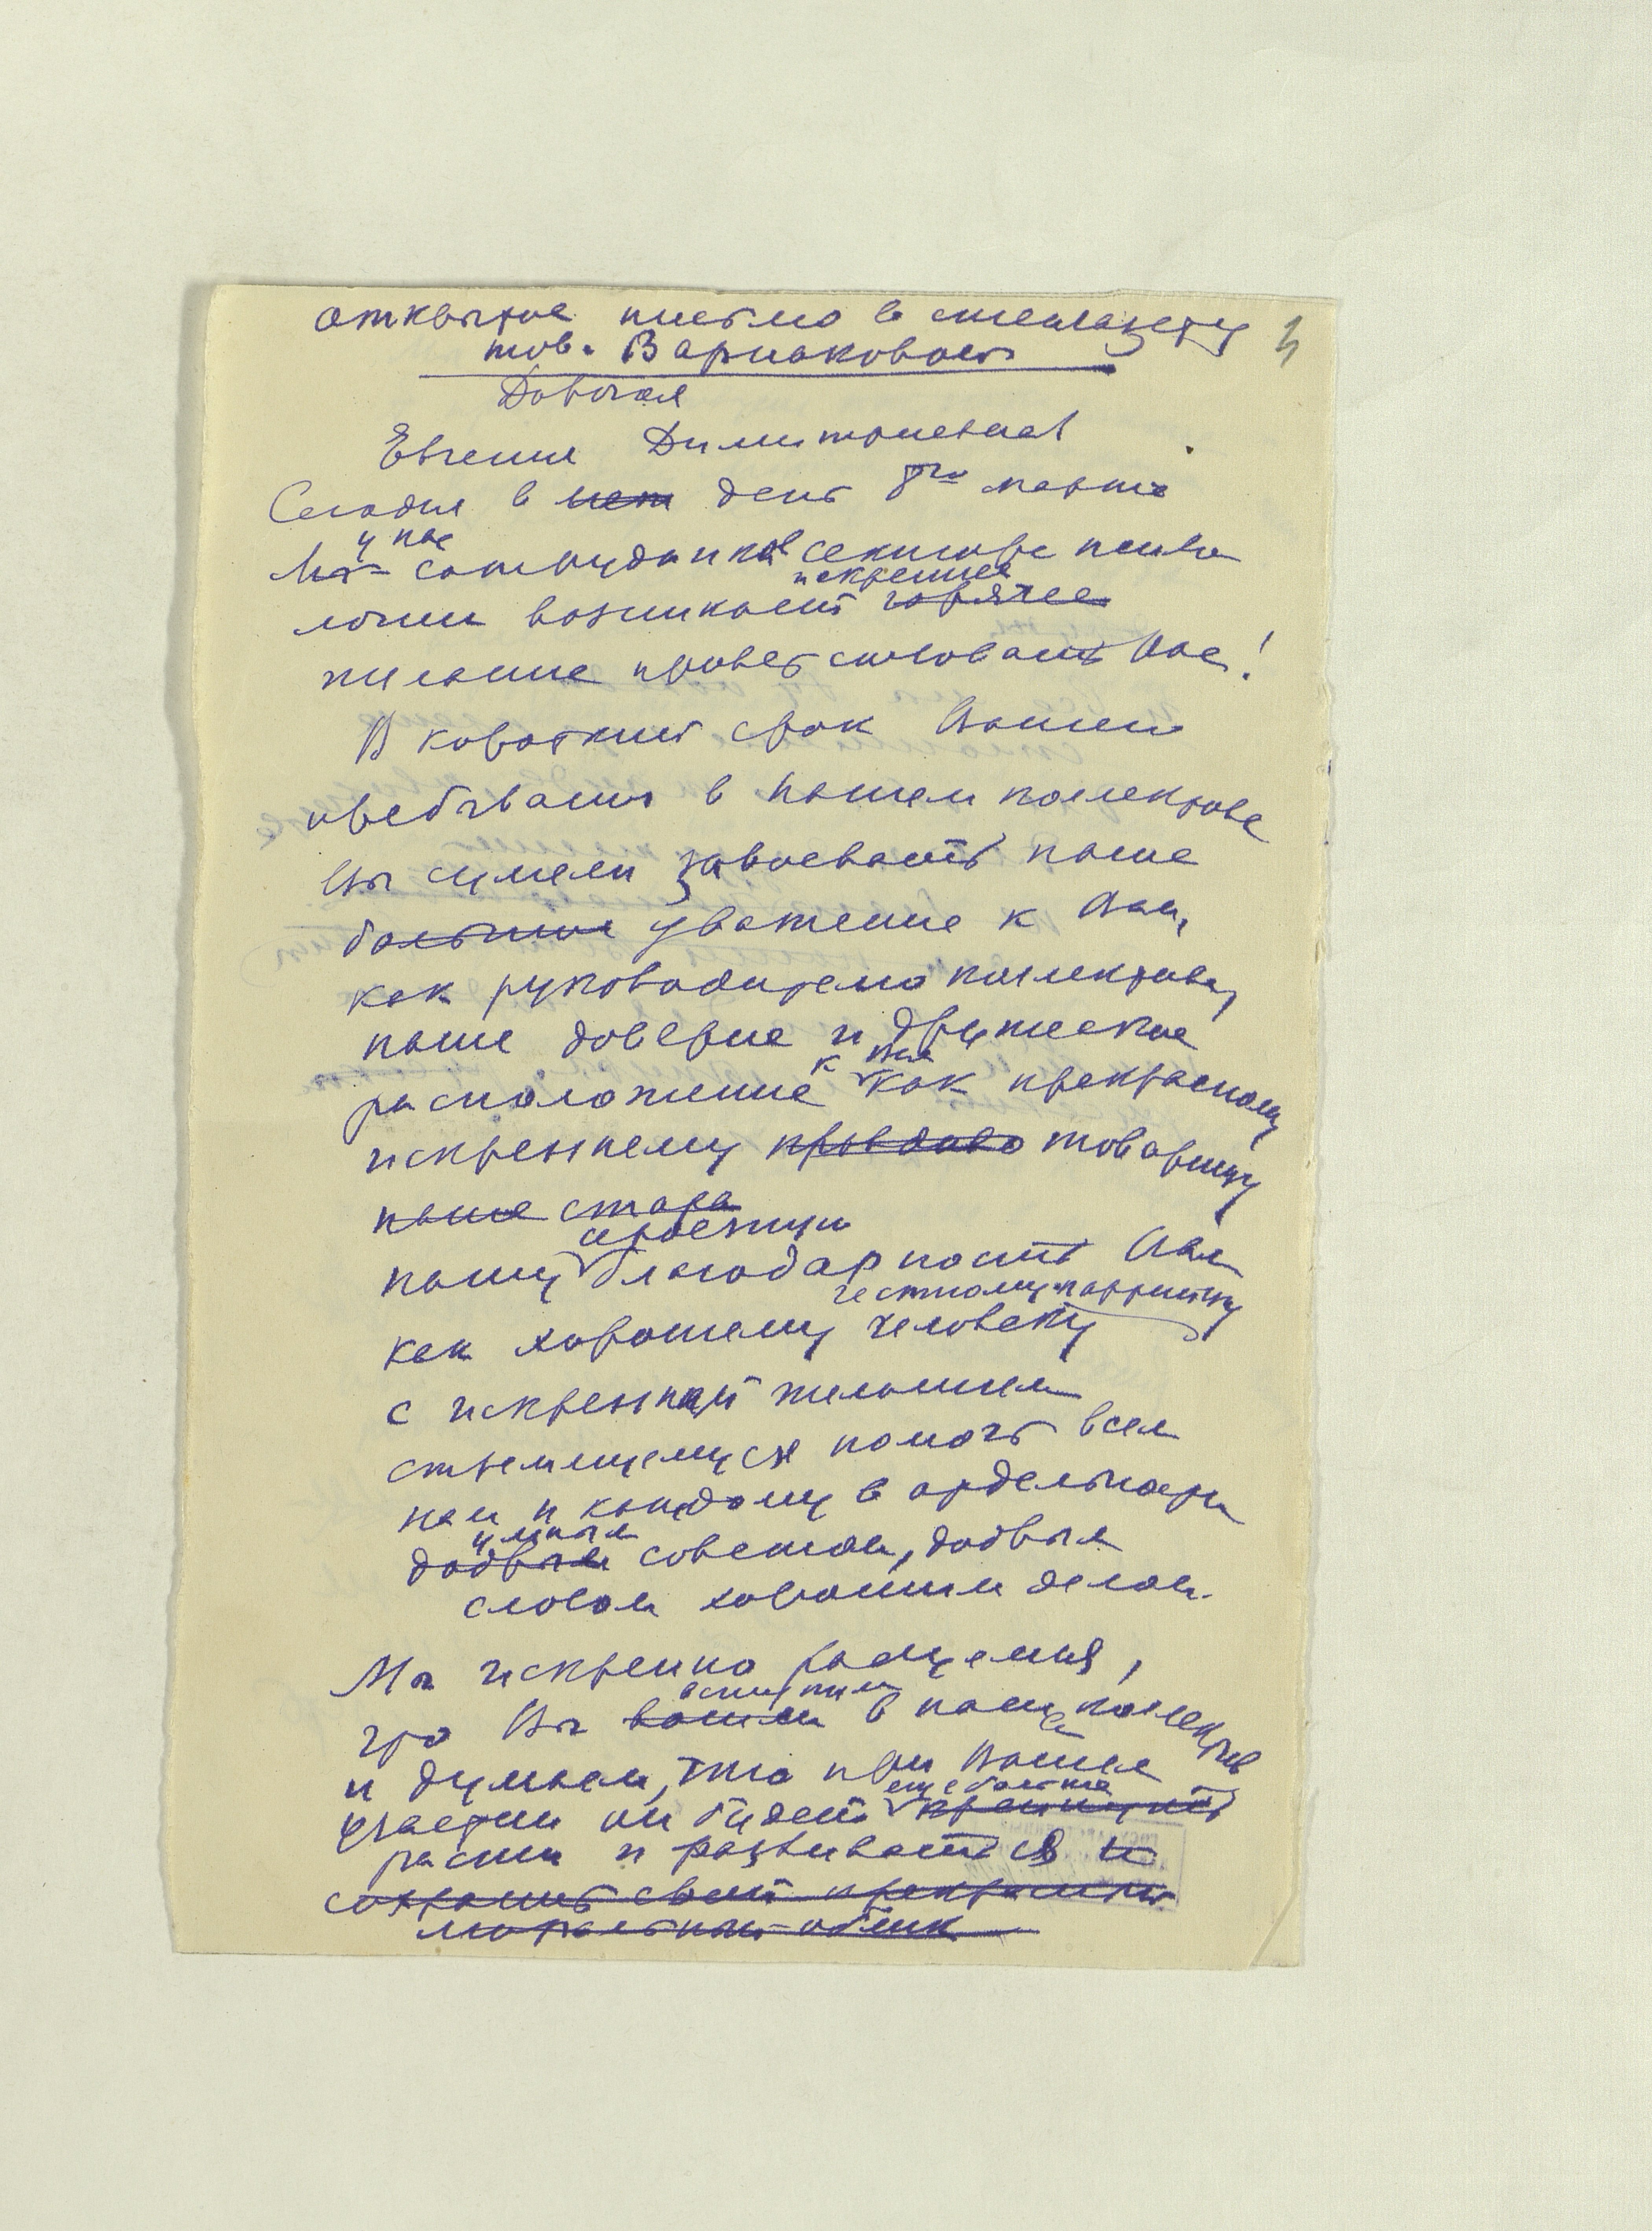 открытое письмо в стенгазету
тов. Варшаковой
Дорогая
Евгения Димитриевна
Сегодня в день 8го марта
у нас
Мы сотрудников сектора психо
искреннее
логии возникает горячее
желание приветствовать Вас!
В короткий срок Вашего
пребывания в нашем коллективе
Вы сумели завоевать наше
большое уважение к Вам,
как руководителю коллектива,
наше доверие и дружеское
к Вам
расположение как прекрасному
искреннему товарищу
наше стара
нашу благодарность Вам
честному партийцу
как хорошему человеку
с искренней желанием
стремящемуся помочь всем
нам и каждому в отдельности
умным
добрым советом, добрым
словом хорошим делом.
Мы искренно радуемся,
вступили
что Вы вошли в наш коллектив
и думаем, что при Вашем
еще больше
участии он будет крепнуть
расти и развиваться и
сохранит свой прекрасный
моральный облик